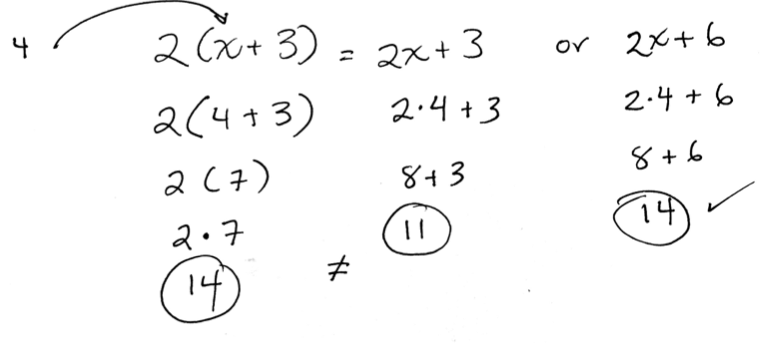 4 2(x+3) = 2x+3 or 2x+6
2(4+3) 2·4+3 2·4+6
2(7) 8+3 8+6
2·7 11 14 ✓
14 ≠